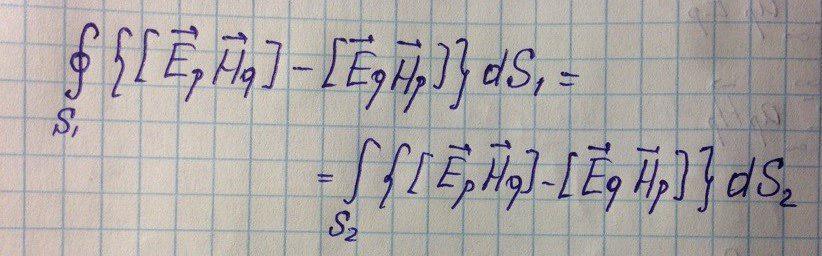 ∮_{S₁} {[E⃗ₚ H⃗_q] − [E⃗_q H⃗ₚ]} dS₁ =
= ∫_{S₂} {[E⃗ₚ H⃗_q] − [E⃗_q H⃗ₚ]} dS₂